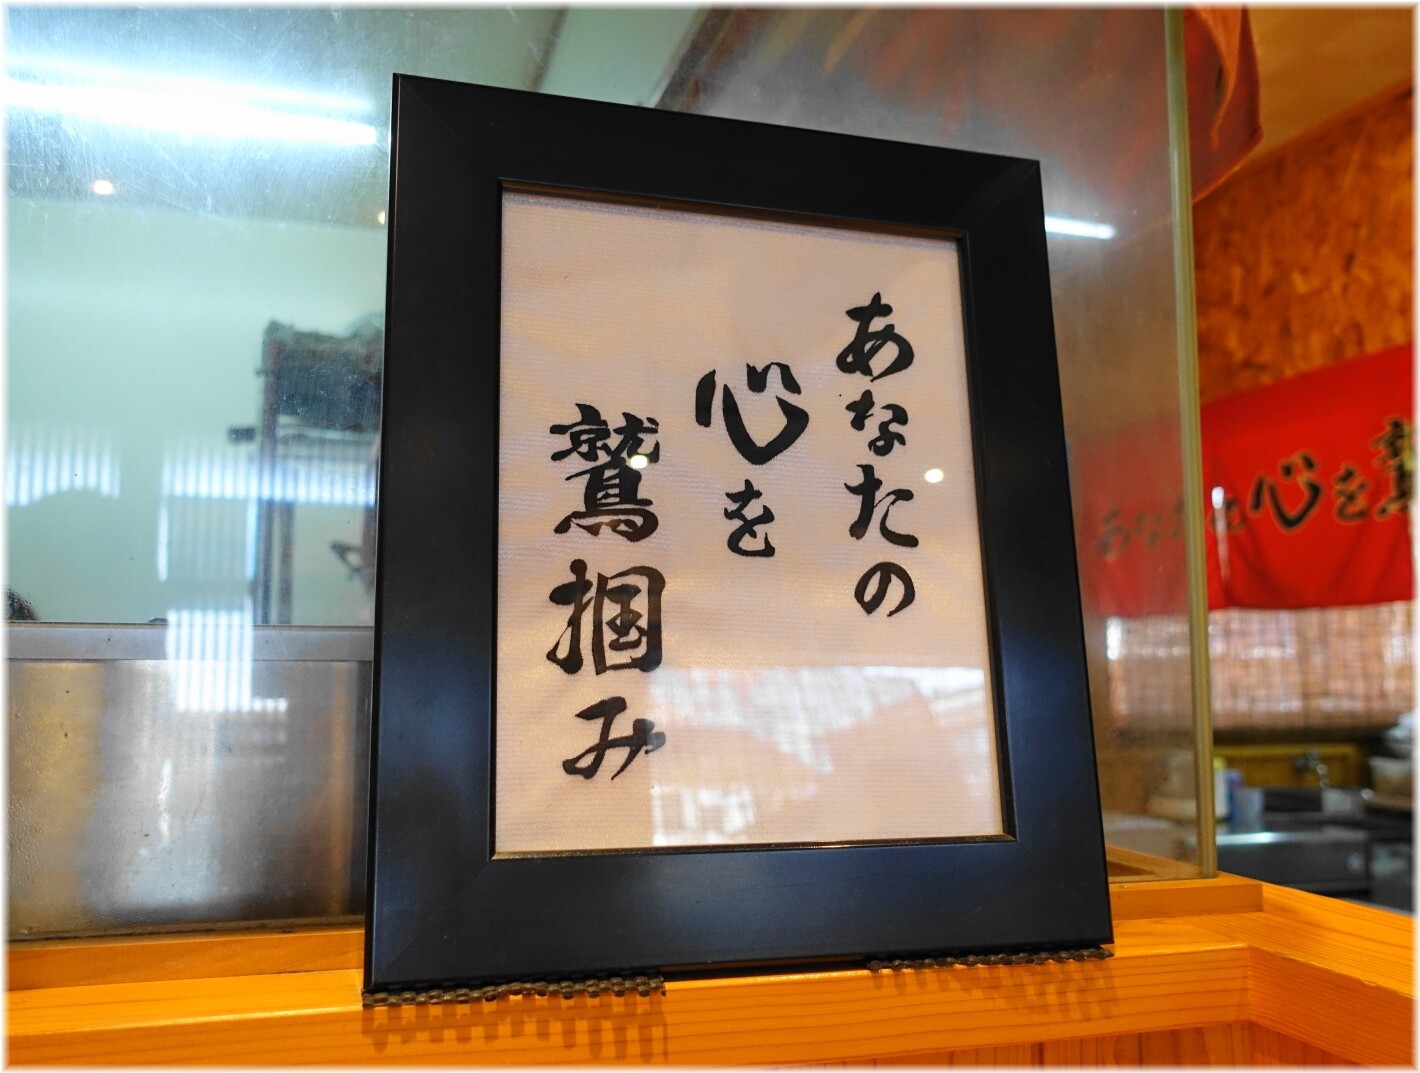 あなたの
心を
鷲掴み
あなたの心を鷲